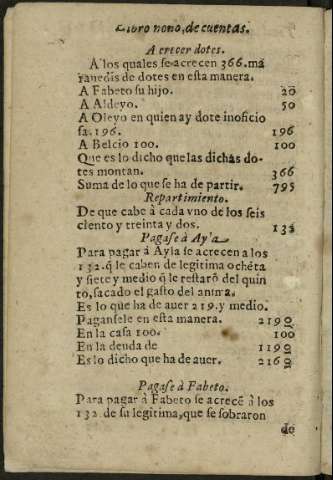 Libro nono, de cuentas.
A crecer dotes.
A los quales se acrecen 366. ma
rauedis de dotes en esta manera.
A Fabeto su hijo. 20
A Aldeyo. 50
A Oleyo en quien ay dote inoficio
sa. 196. 196
A Belcio 100. 100
Que es lo dicho que las dichas do-
tes montan. 366
Suma de lo que se ha de partir. 795
Repartimiento.
De que cabe à cada vno de los seis
ciento y treinta y dos. 132
Pagase à Ayla
Para pagar à Ayla se acrecen a los
132. q̃ le caben de legitima ochẽta
y siete y medio q̃ le restarõ del quin
to, sacado el gasto del anima.
Es lo que ha de auer 219. y medio.
Pagansele en esta manera. 2190
En la casa 100. 100
En la deuda de 1190
Es lo dicho que ha de auer. 2160
Pagase à Fabeto.
Para pagar à Fabeto se acrecẽ à los
132. de su legitima, que se sobraron
de